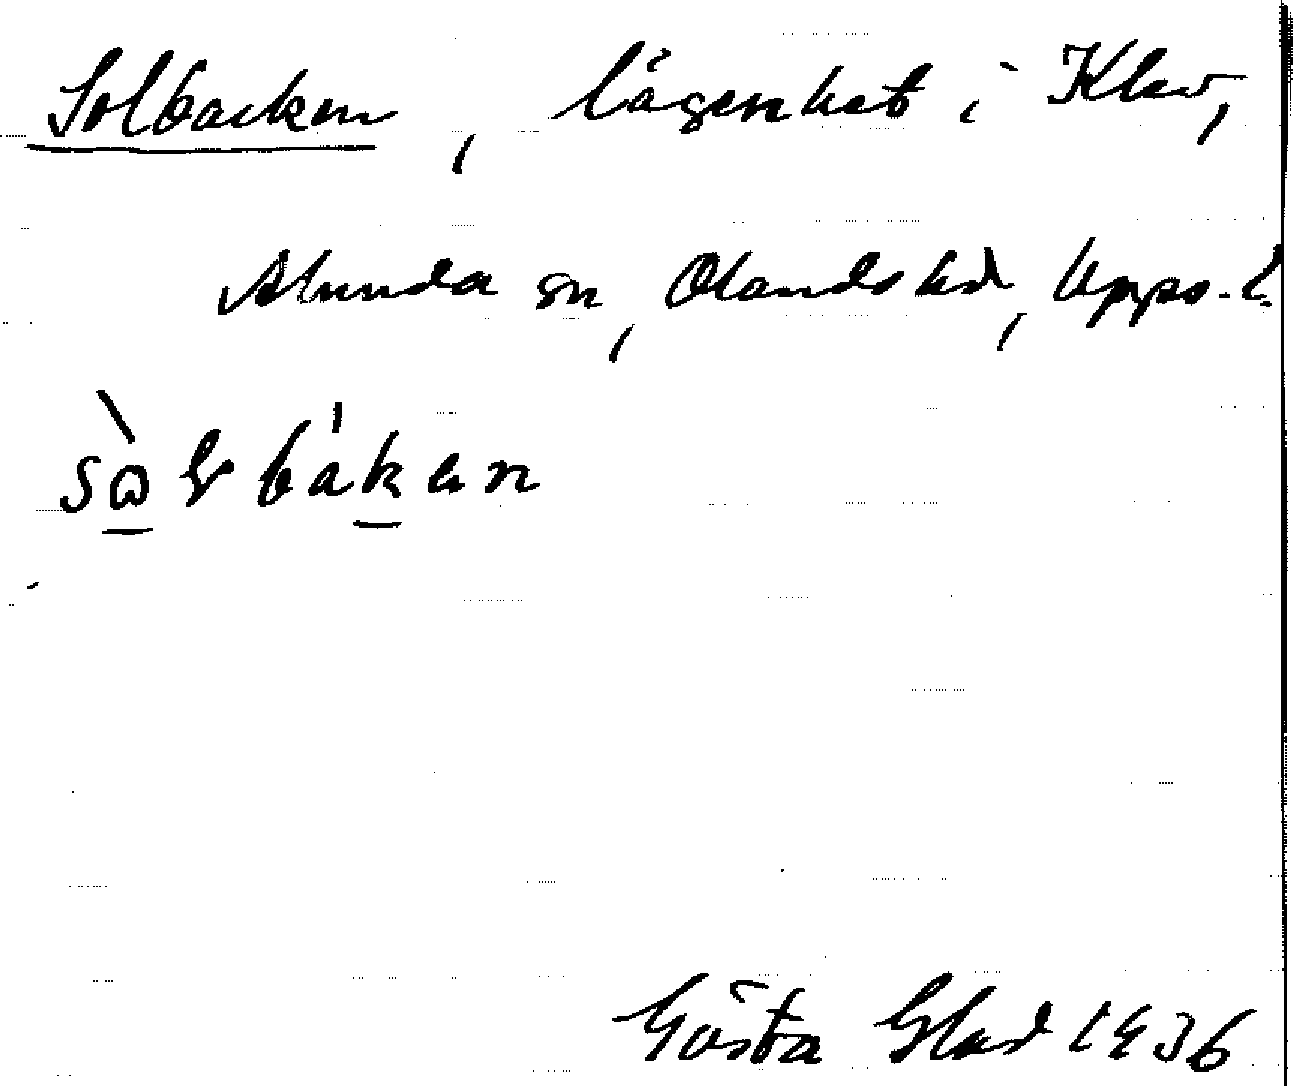 Solbacken, lägenhet i Klev,
Alunda sn, Olands hd, Upps. l.
sòlbaken
Gösta Glad 1936